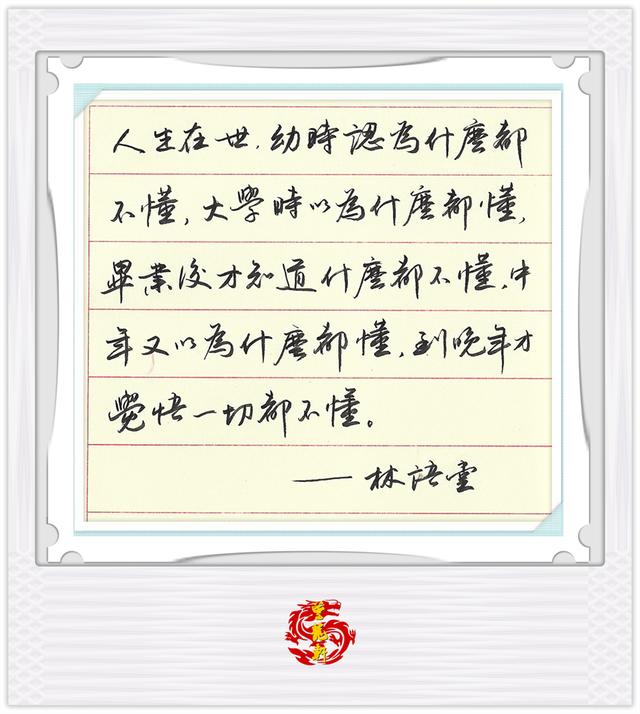 人生在世，幼時認為什麼都
不懂，大學時以為什麼都懂，
畢業後才知道什麼都不懂，中
年又以為什麼都懂，到晚年才
覺悟一切都不懂。
——林語堂